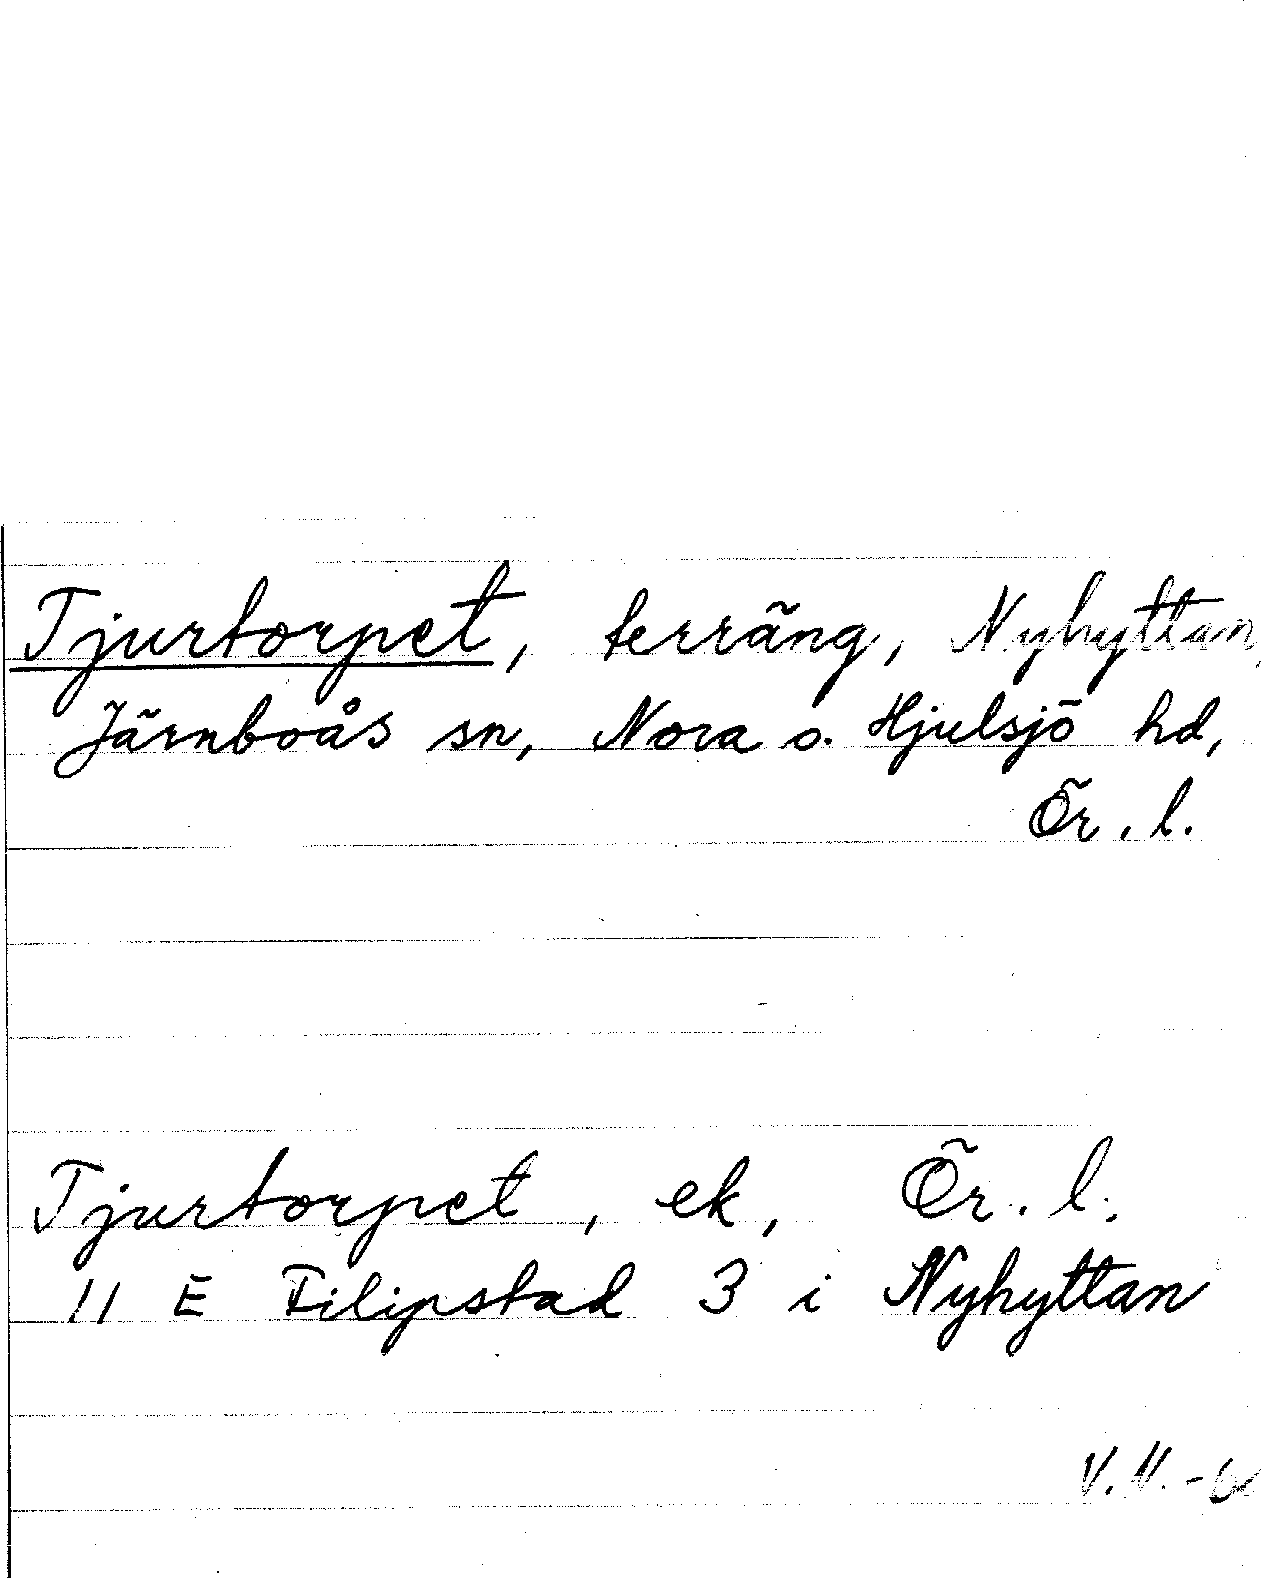 Tjurtorpet, terräng, Nyhyttan,
Järnboås sn, Nora o. Hjulsjö hd,
Ör. l.
Tjurtorpet, ek, Ör. l.
11 E Filipstad 3 i Nyhyttan